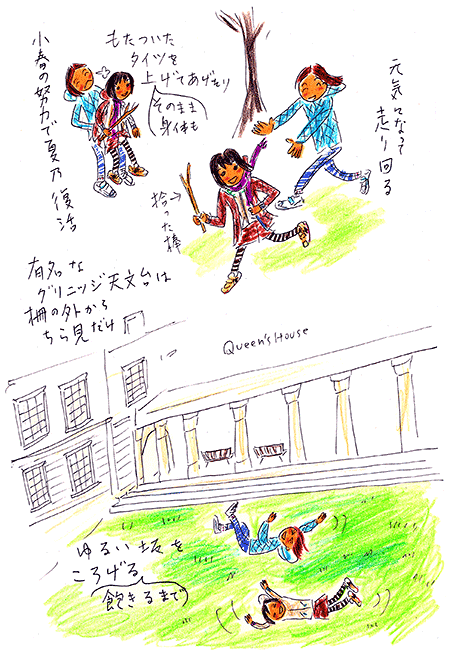 小春の努力で夏乃復活
もたついた
タイツを
上げてあげたり
そのまま
身体も
元気になって
走り回る
拾った棒
有名な
グリニッジ天文台は
柵の外から
ちら見だけ
Queen's House
ゆるい坂を
ころげる
飽きるまで